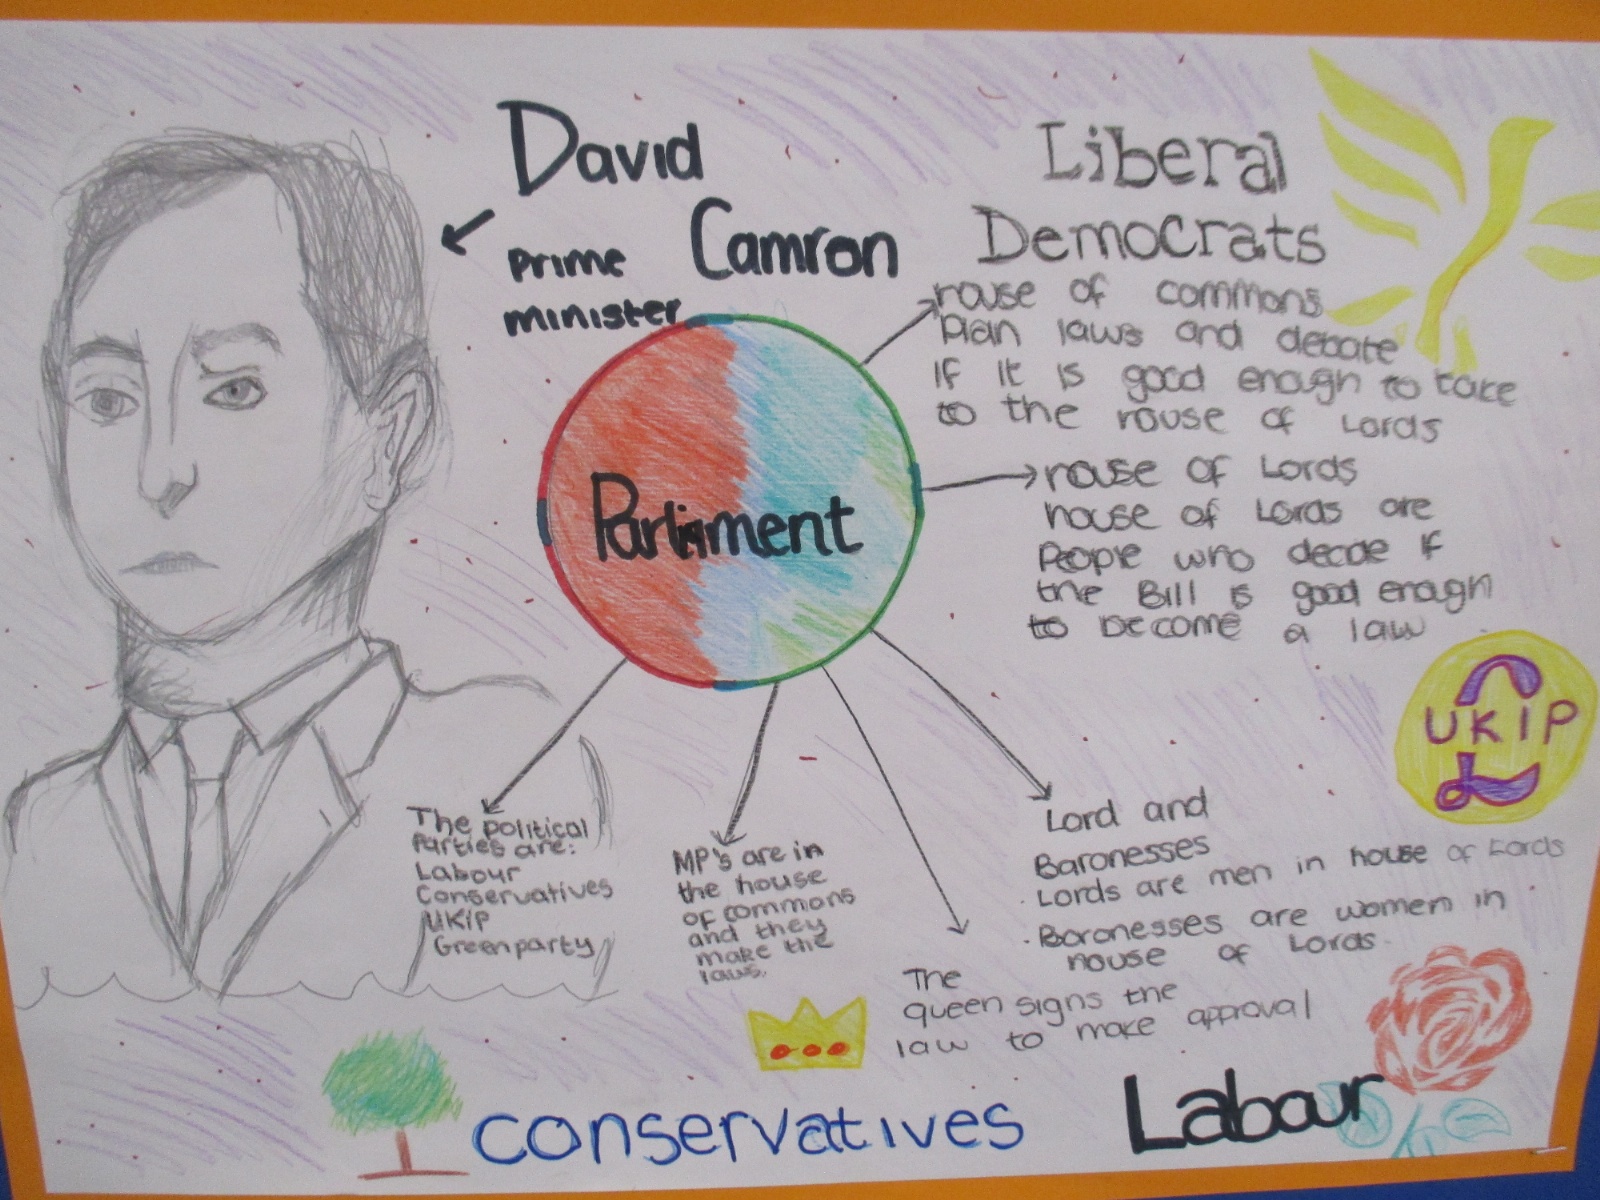 David
Camron
prime
minister
Liberal
Democrats
house of commons
Plan laws and debate
If it is good enough to take
to the house of Lords
Parliament
house of Lords
house of Lords are
People who decide if
the Bill is good enough
to become a law
UKIP
The political
Parties are:
Labour
Conservatives
UKIP
Green party
MP's are in
the house
of commons
and they
make the
laws.
The
queen signs the
law to make approval
Lord and
Baronesses
· Lords are men in house of Lords
· Baronesses are women in
house of Lords.
conservatives
Labour